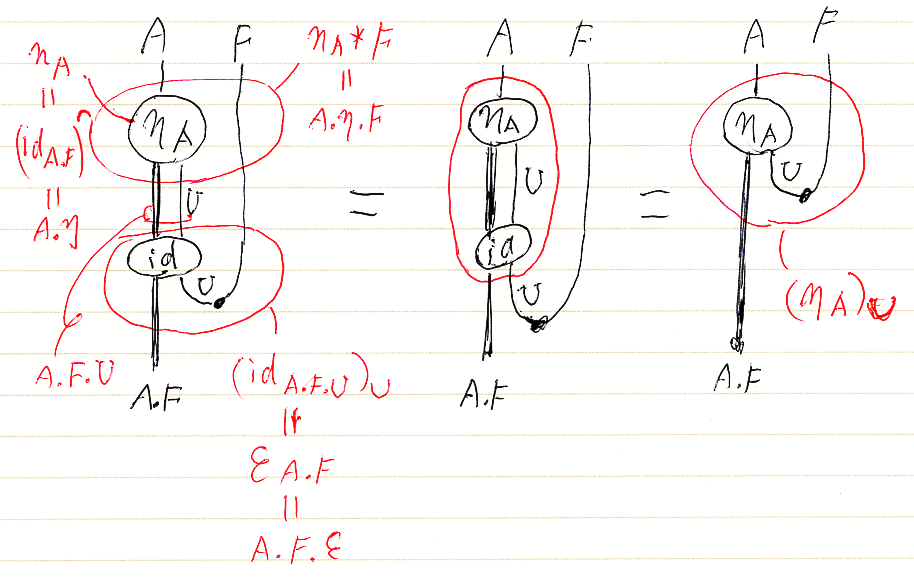 A F
ηA
ηA * F
||
A.η.F
||
(id A.F)^
||
A.η
ηA
U
id
U
A.F.U
A.F
(id A.F.U)U
||
ε A.F
||
A.F.ε
=
A F
ηA
U
id
U
A.F
=
A F
ηA
U
(ηA)U
A.F